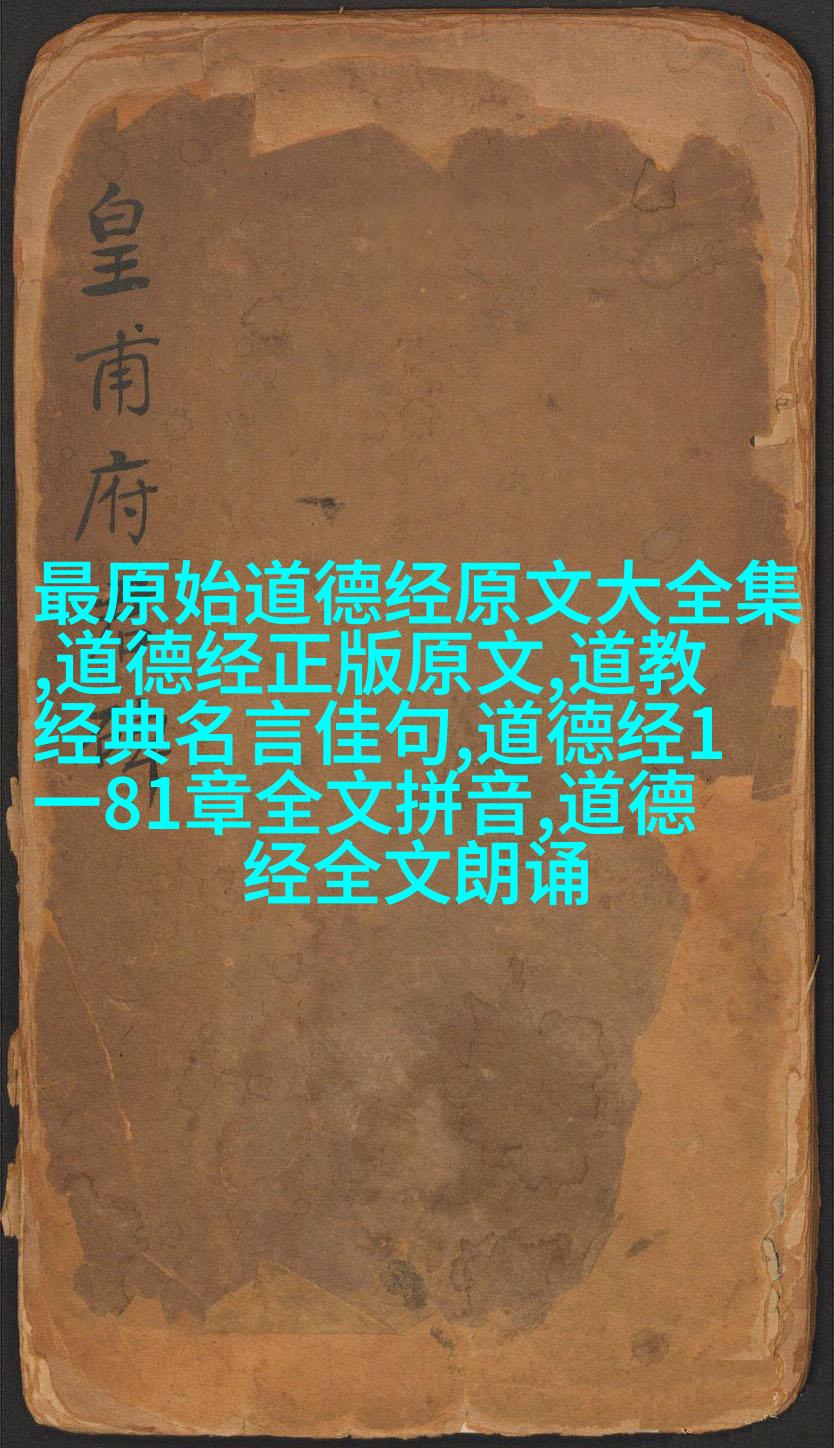 皇甫府
最原始道德经原文大全集
,道德经正版原文,道教
经典名言佳句,道德经1
一81章全文拼音,道德
经全文朗诵